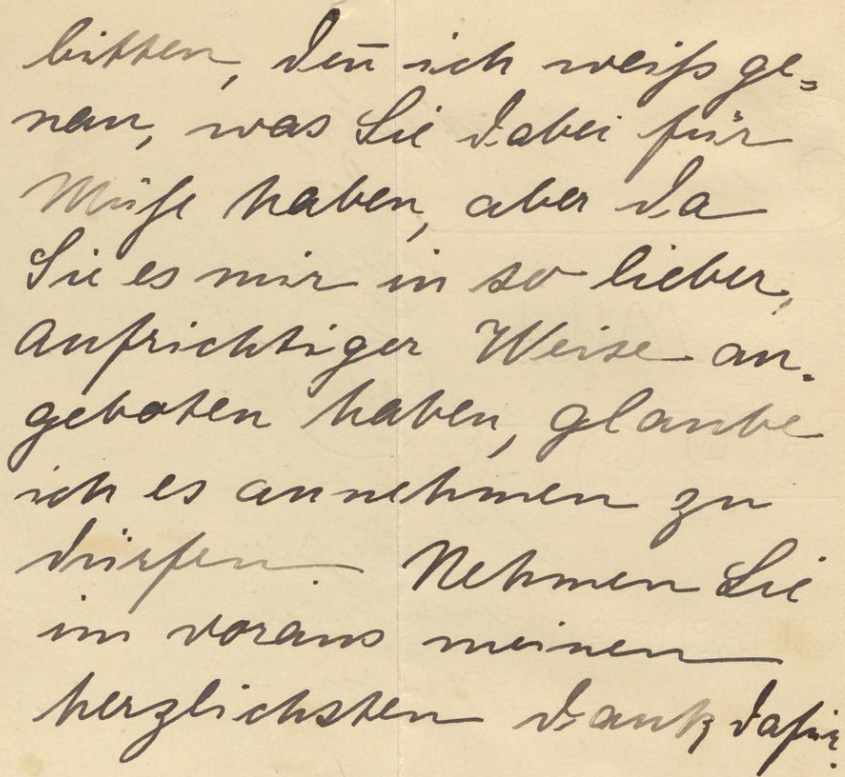 bitten, den̄ ich weiß ge=
nau, was Sie dabei für
Mühe haben, aber da
Sie es mir in so lieber,
aufrichtiger Weise an-
geboten haben, glaube
ich es annehmen zu
dürfen. Nehmen Sie
im voraus meinen
herzlichsten Dank dafür.